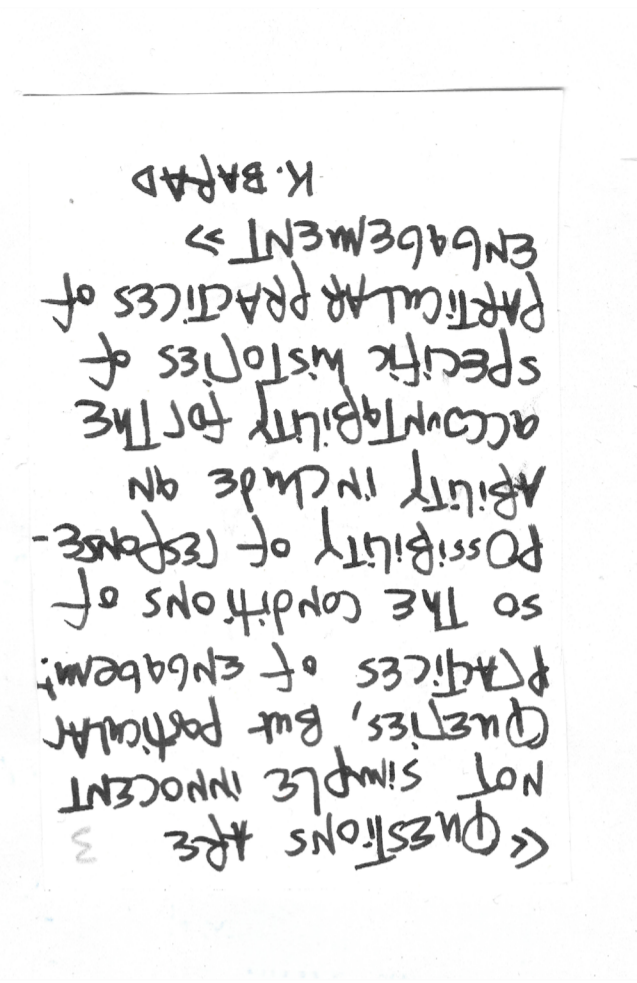 « QUESTIONS ARE 3
NOT SIMPLE INNOCENT
QUERIES, BUT PARTICULAR
PRACTICES OF ENGAGEMENT;
SO THE CONDITIONS OF
POSSIBILITY OF RESPONSE-
ABILITY INCLUDE AN
ACCOUNTABILITY FOR THE
SPECIFIC HISTORIES OF
PARTICULAR PRACTICES OF
ENGAGEMENT »
K. BARAD